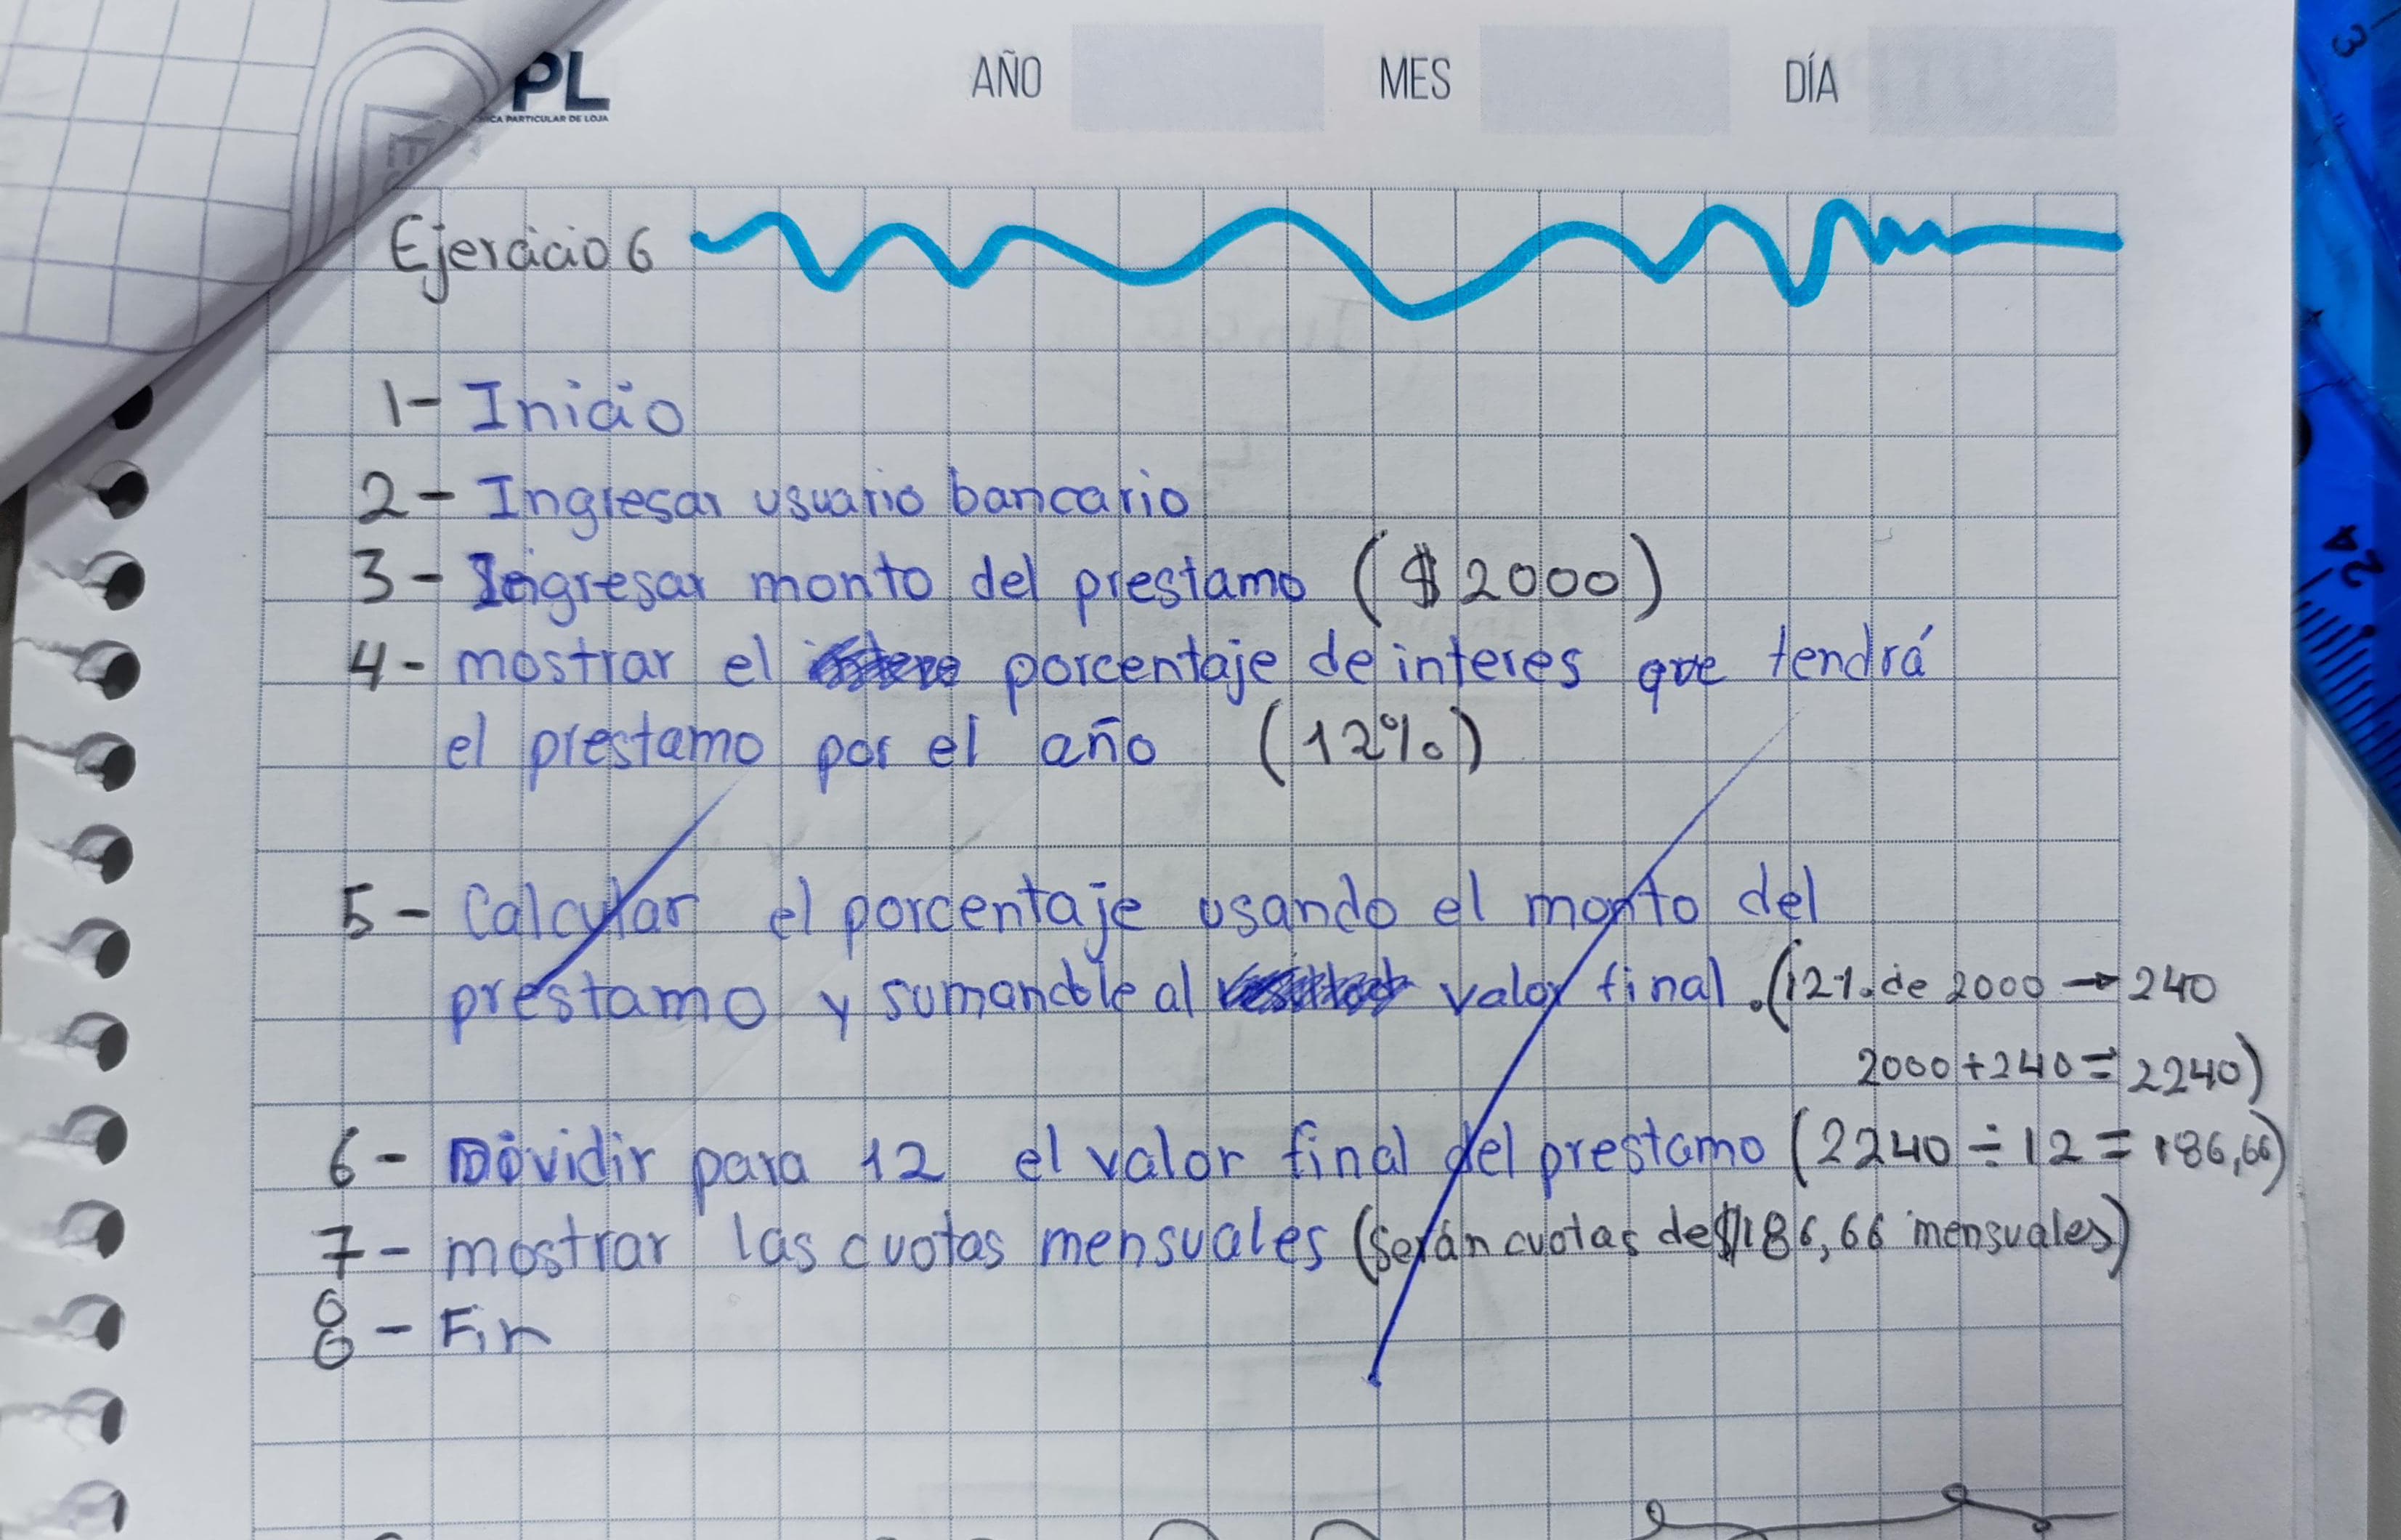 PL
ICA PARTICULAR DE LOJA
AÑO MES DÍA
Ejercicio 6
1- Inicio
2- Ingresar usuario bancario
3- Ingresar monto del prestamo ($2000)
4- mostrar el porcentaje de interes que tendrá
el prestamo por el año (12%)
5- Calcular el porcentaje usando el monto del
prestamo y sumandole al valor final. (12%. de 2000 → 240
2000 + 240 = 2240)
6- Dividir para 12 el valor final del prestamo (2240 ÷ 12 = 186,66)
7- mostrar las cuotas mensuales (serán cuotas de $186,66 mensuales)
8- Fin
24
3